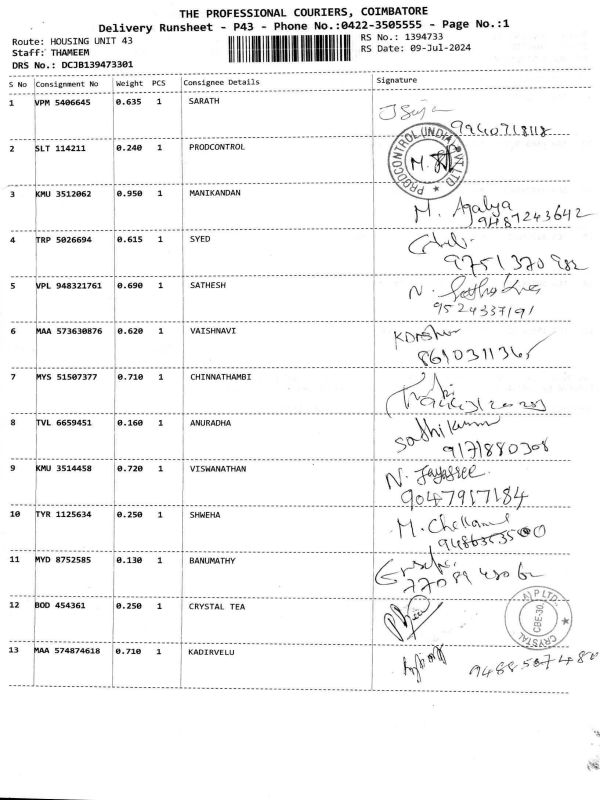 THE PROFESSIONAL COURIERS, COIMBATORE
Delivery Runsheet - P43 - Phone No.:0422-3505555 - Page No.:1
Route: HOUSING UNIT 43
RS No.: 1394733
Staff: THAMEEM
RS Date: 09-Jul-2024
DRS No.: DCJB139473301
S No Consignment No Weight PCS Consignee Details Signature
1 VPM 5406645 0.635 1 SARATH
9940718118
2 SLT 114211 0.240 1 PRODCONTROL
PRODCONTROL (INDIA) PVT LTD
3 KMU 3512062 0.950 1 MANIKANDAN
M. Agalya
9487243642
4 TRP 5026694 0.615 1 SYED
9751370982
5 VPL 948321761 0.690 1 SATHESH
9524337191
6 MAA 573630876 0.620 1 VAISHNAVI
8610311365
7 MYS 51507377 0.710 1 CHINNATHAMBI
8 TVL 6659451 0.160 1 ANURADHA
Sathikumar
9171880308
9 KMU 3514458 0.720 1 VISWANATHAN
N. Jayasree
9047917184
10 TYR 1125634 0.250 1 SHWEHA
11 MYD 8752585 0.130 1 BANUMATHY
12 BOD 454361 0.250 1 CRYSTAL TEA
CRYSTAL
P LTD.
CBE-30.
13 MAA 574874618 0.710 1 KADIRVELU
9488587480